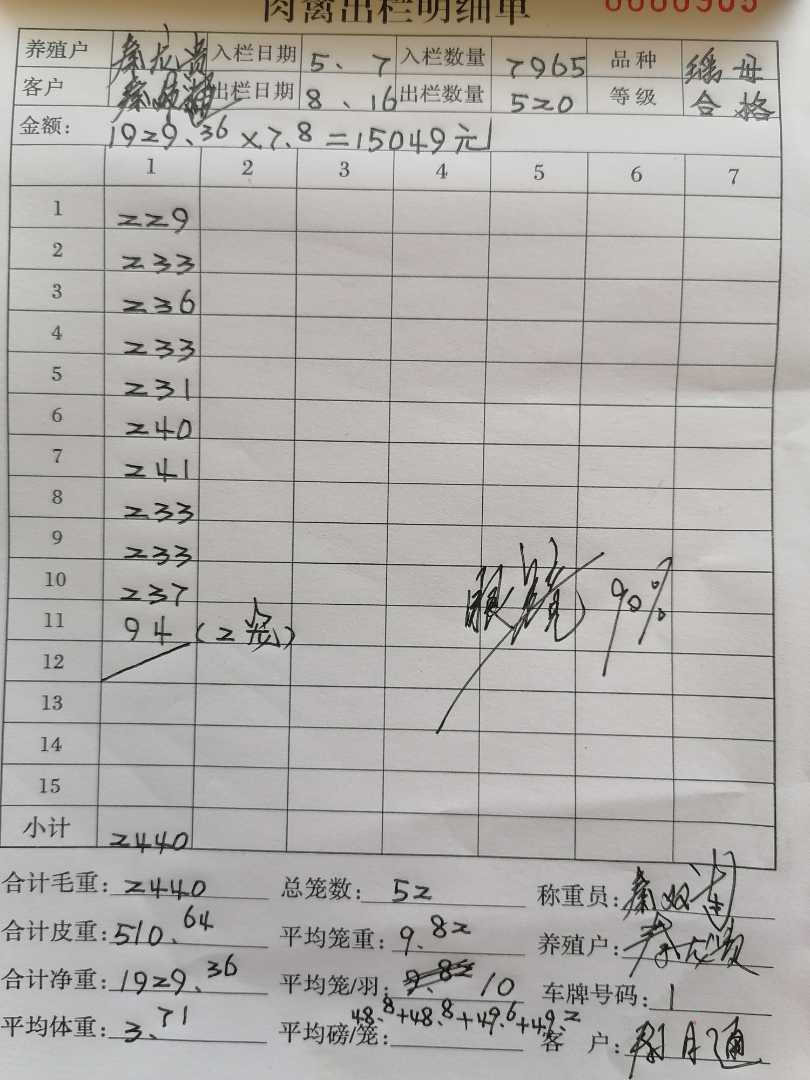 肉禽出栏明细单 0000905
养殖户 秦龙贵 入栏日期 5、7 入栏数量 7965 品种 瑶母
客户 出栏日期 8、16 出栏数量 520 等级 合格
金额: 1929.36×7.8=15049元
1 2 3 4 5 6 7
1 229
2 233
3 236
4 233
5 231
6 240
7 241
8 233
9 233
10 237
11 94 (2笼) 90%
12
13
14
15
小计 2440
合计毛重: 2440 总笼数: 52 称重员:
合计皮重: 510.64 平均笼重: 9.82 养殖户:
合计净重: 1929.36 平均笼/羽: 10 车牌号码: 1
平均体重: 3.71 平均磅/笼: 48.8+48.8+49.6+49.2 客户: